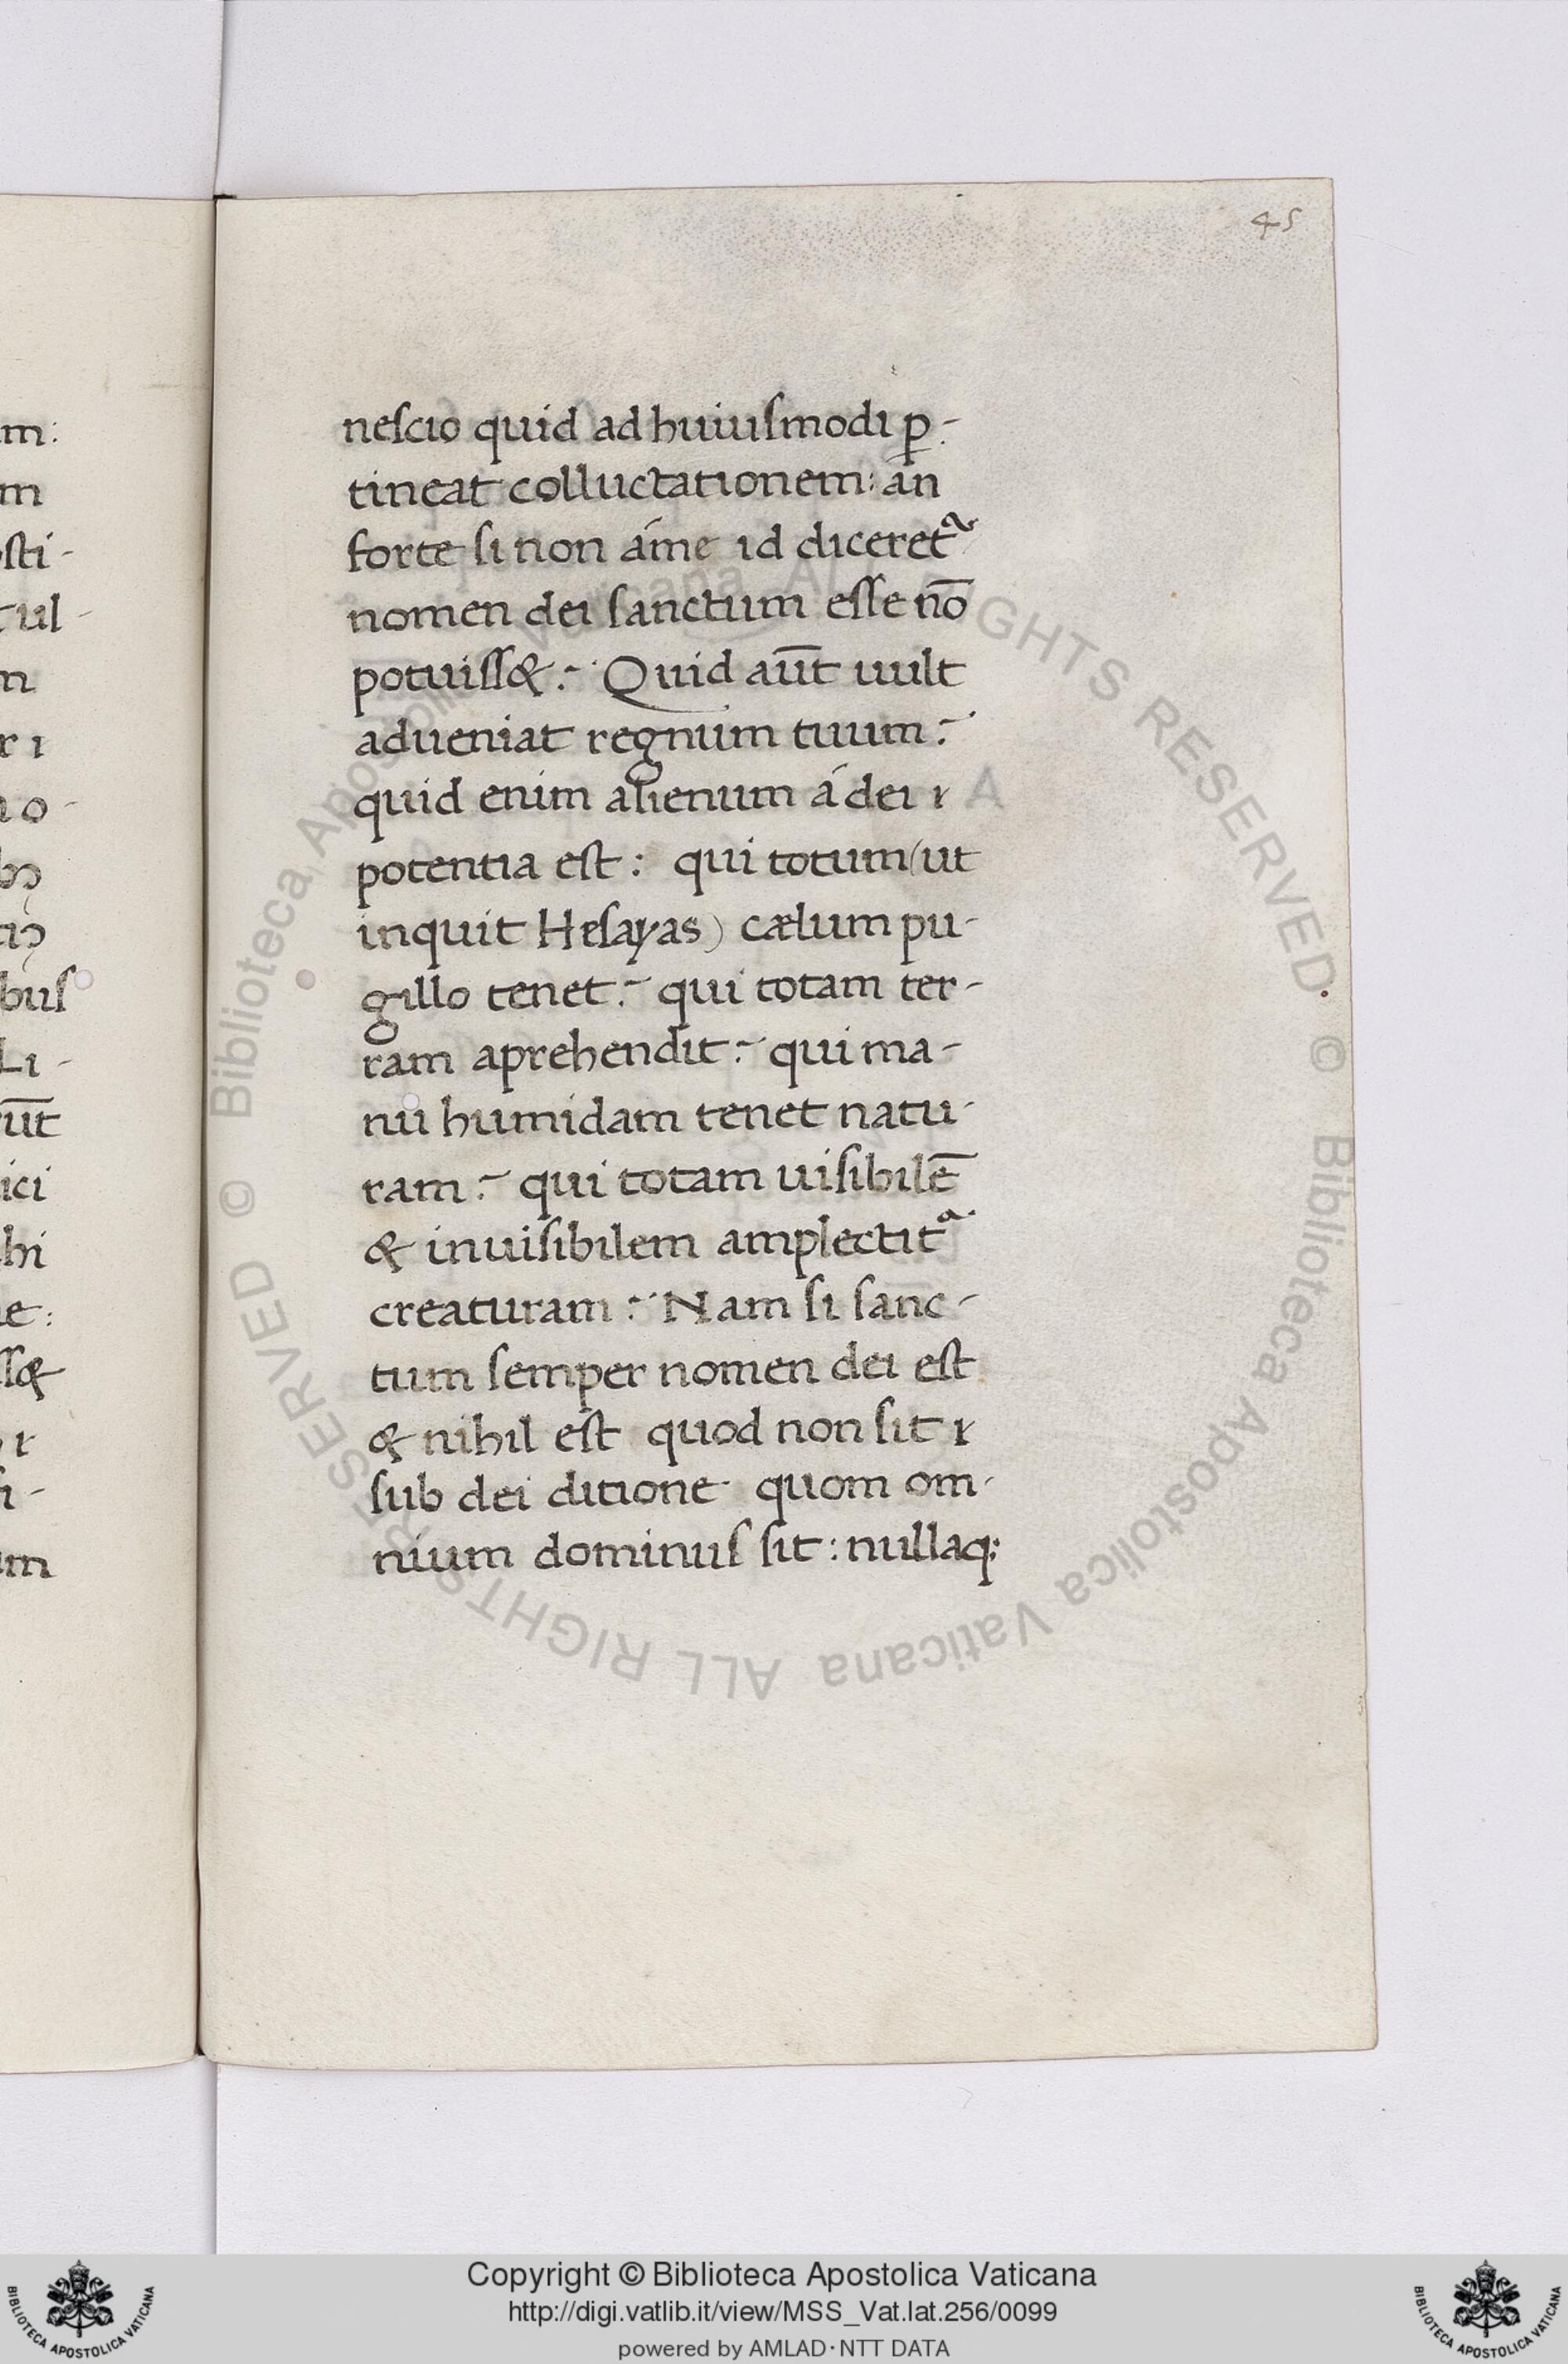 45
nescio quid ad huiusmodi ꝑ-
tineat colluctationem: an
forte si non á me id diceret᷑
nomen dei sanctum esse nō
potuiss&. Quid aūt uult
adueniat regnum tuum.
quid enim alienum á dei
potentia est: qui totum (ut
inquit Hesayas) cælum pu-
gillo tenet. qui totam ter-
ram aprehendit. qui ma-
nu humidam tenet natu-
ram. qui totam uisibilē
& inuisibilem amplectit᷑
creaturam. Nam si sanc-
tum semper nomen dei est
& nihil est quod non sit
sub dei ditione quom om-
nium dominus sit: nullaq;
m:
m
sti-
ul-
n
r i
o-
bus
Li-
ūt
ici
hi
e:
ss&
um
© Biblioteca Apostolica Vaticana ALL RIGHTS RESERVED © Biblioteca Apostolica Vaticana ALL RIGHTS RESERVED
Copyright © Biblioteca Apostolica Vaticana
http://digi.vatlib.it/view/MSS_Vat.lat.256/0099
powered by AMLAD · NTT DATA
BIBLIOTECA APOSTOLICA VATICANA
BIBLIOTECA APOSTOLICA VATICANA